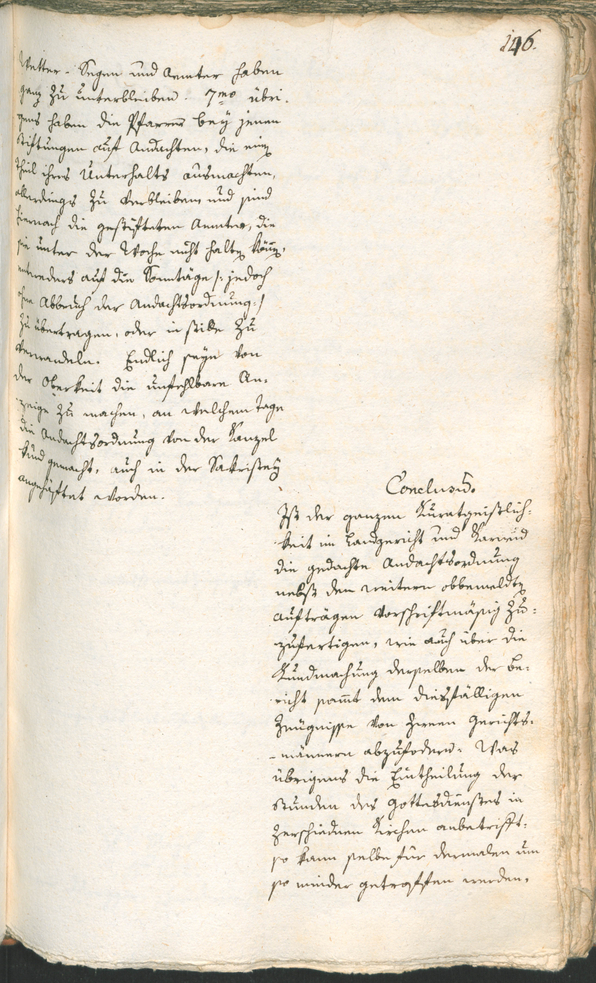 146.
Wetter-Segen und Aemter haben
ganz zu unterbleiben. 7mo übri-
gens haben die Pfarrer bey jenen
Stiftungen auf Andachten, die ein
Theil ihres Unterhalts ausmachten,
allerdings zu verbleiben, und sind
hiernach die gestifteten Aemter, die
sie unter der Woche nicht halten könn.
entweders auf die Sonntäge /: jedoch
ohne Abbruch der Andachtsordnung :/
zu übertragen, oder in stille zu
verwandeln. Endlich seye von
der Obrigkeit die unfehlbare An-
zeige zu machen, an welchem Tage
die Andachtsordnung von der Kanzel
kund gemacht, auch in der Sakristey
angeheftet worden.
Conclusum.
Ist der ganzen Kuratgeistlich-
keit im Landgericht und
die gedachte Andachtsordnung
nebst den weitern obbemeldten
Aufträgen vorschriftmäsig zu-
zufertigen, wie auch über die
Kundmachung derselben der Be-
richt sammt dem diesfälligen
Zeugnisse von zween Gerichts-
männern abzufodern. Was
übrigens die Eintheilung der
Stunden des Gottesdienstes in
verschiednen Kirchen anbetrifft,
so kann selbe für dermalen um
so minder getroffen werden,